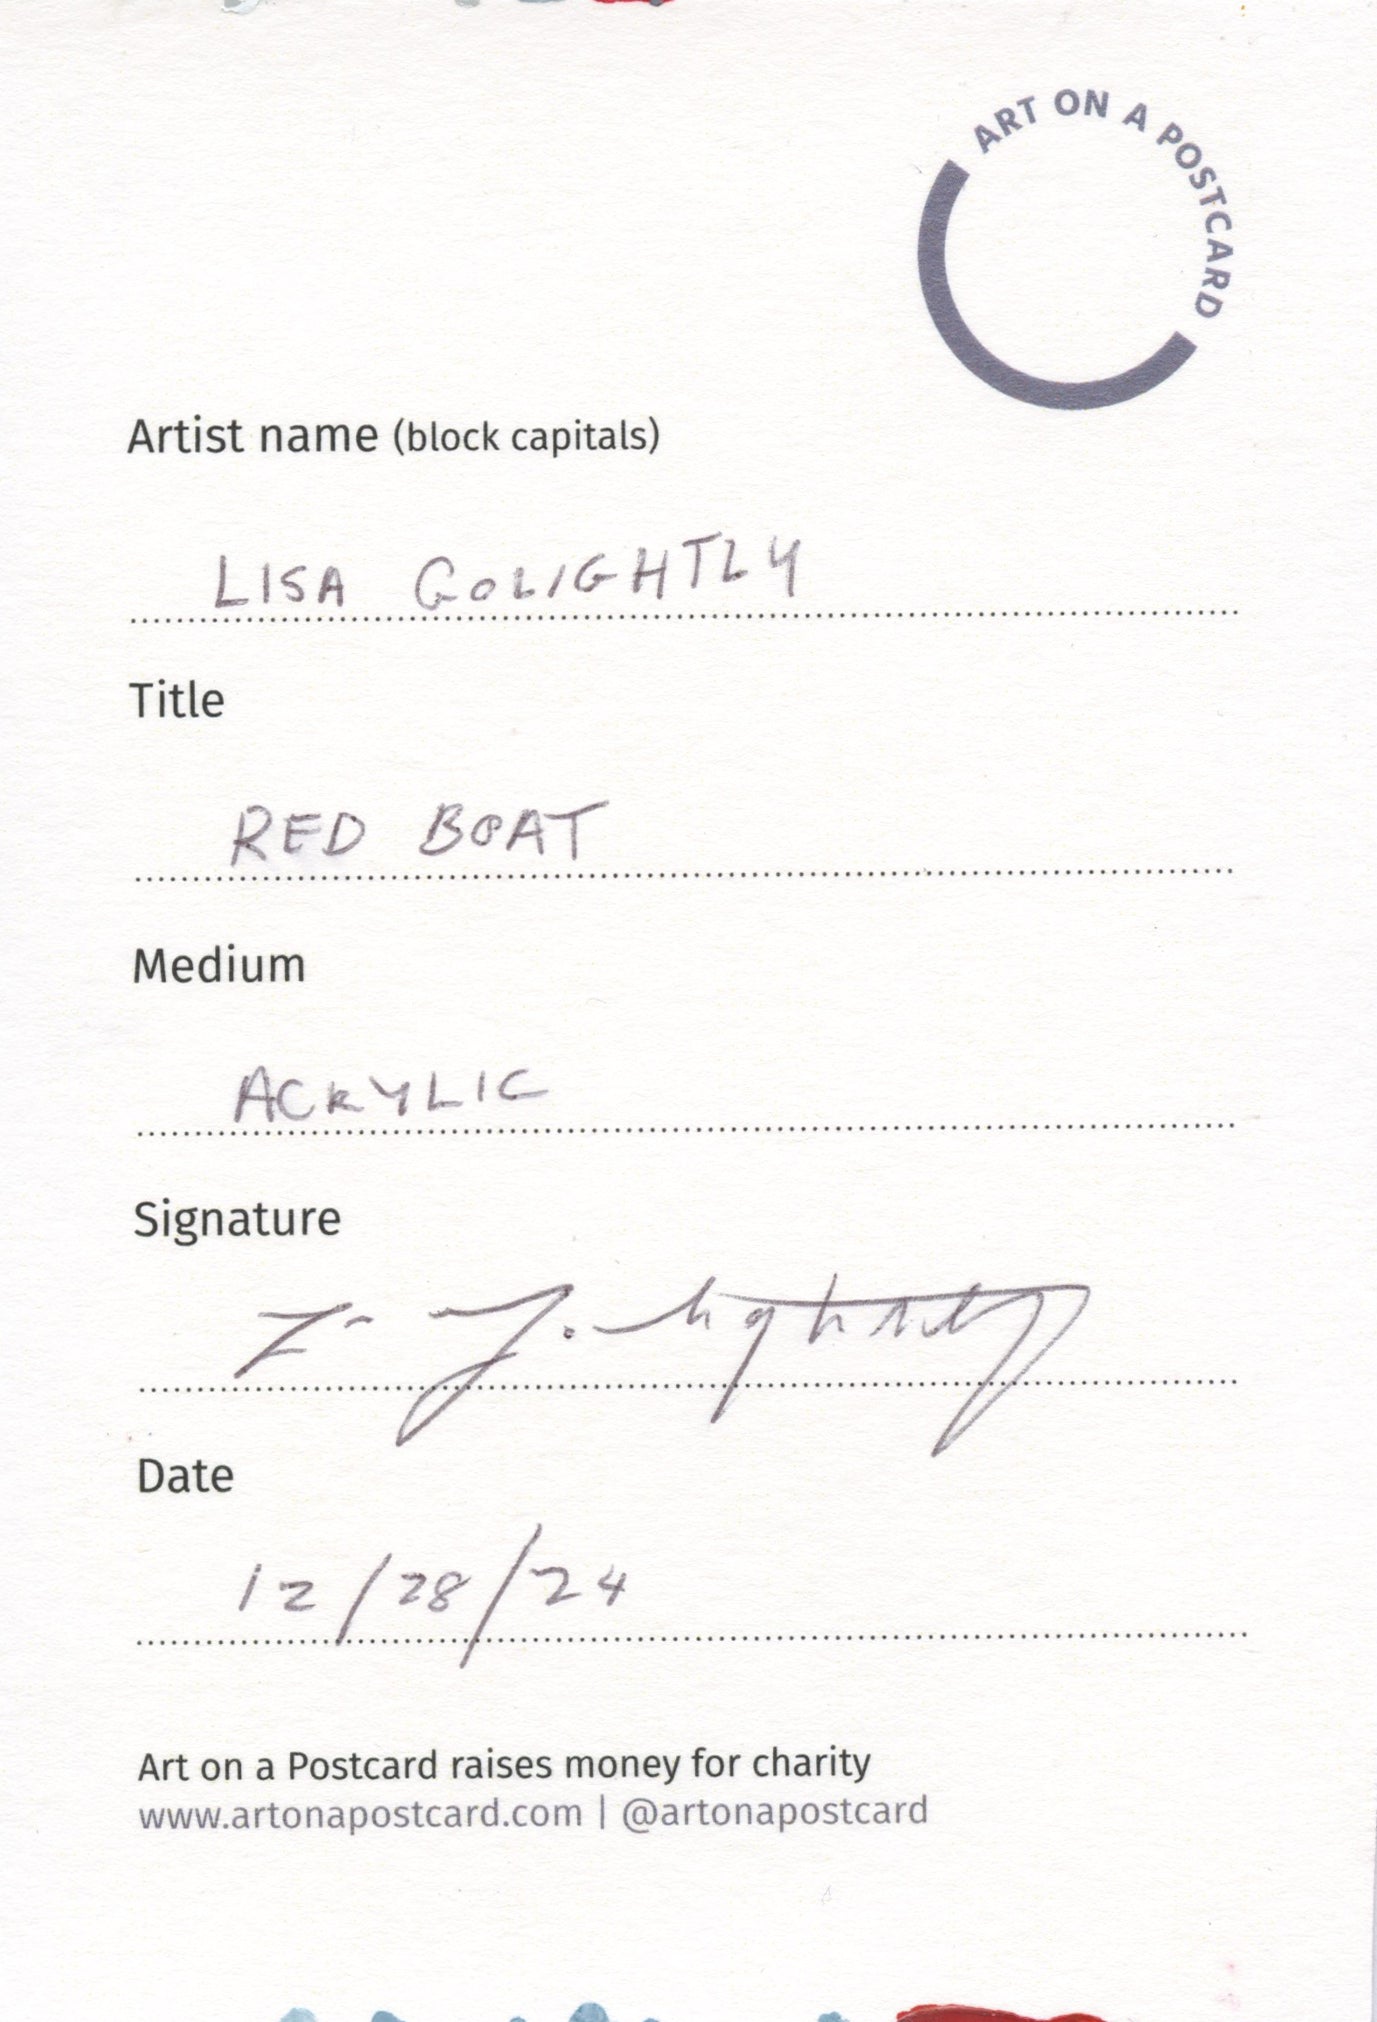 ART ON A POSTCARD
Artist name (block capitals)
LISA GOLIGHTLY
Title
RED BOAT
Medium
ACRYLIC
Signature
Date
12/28/24
Art on a Postcard raises money for charity
www.artonapostcard.com | @artonapostcard